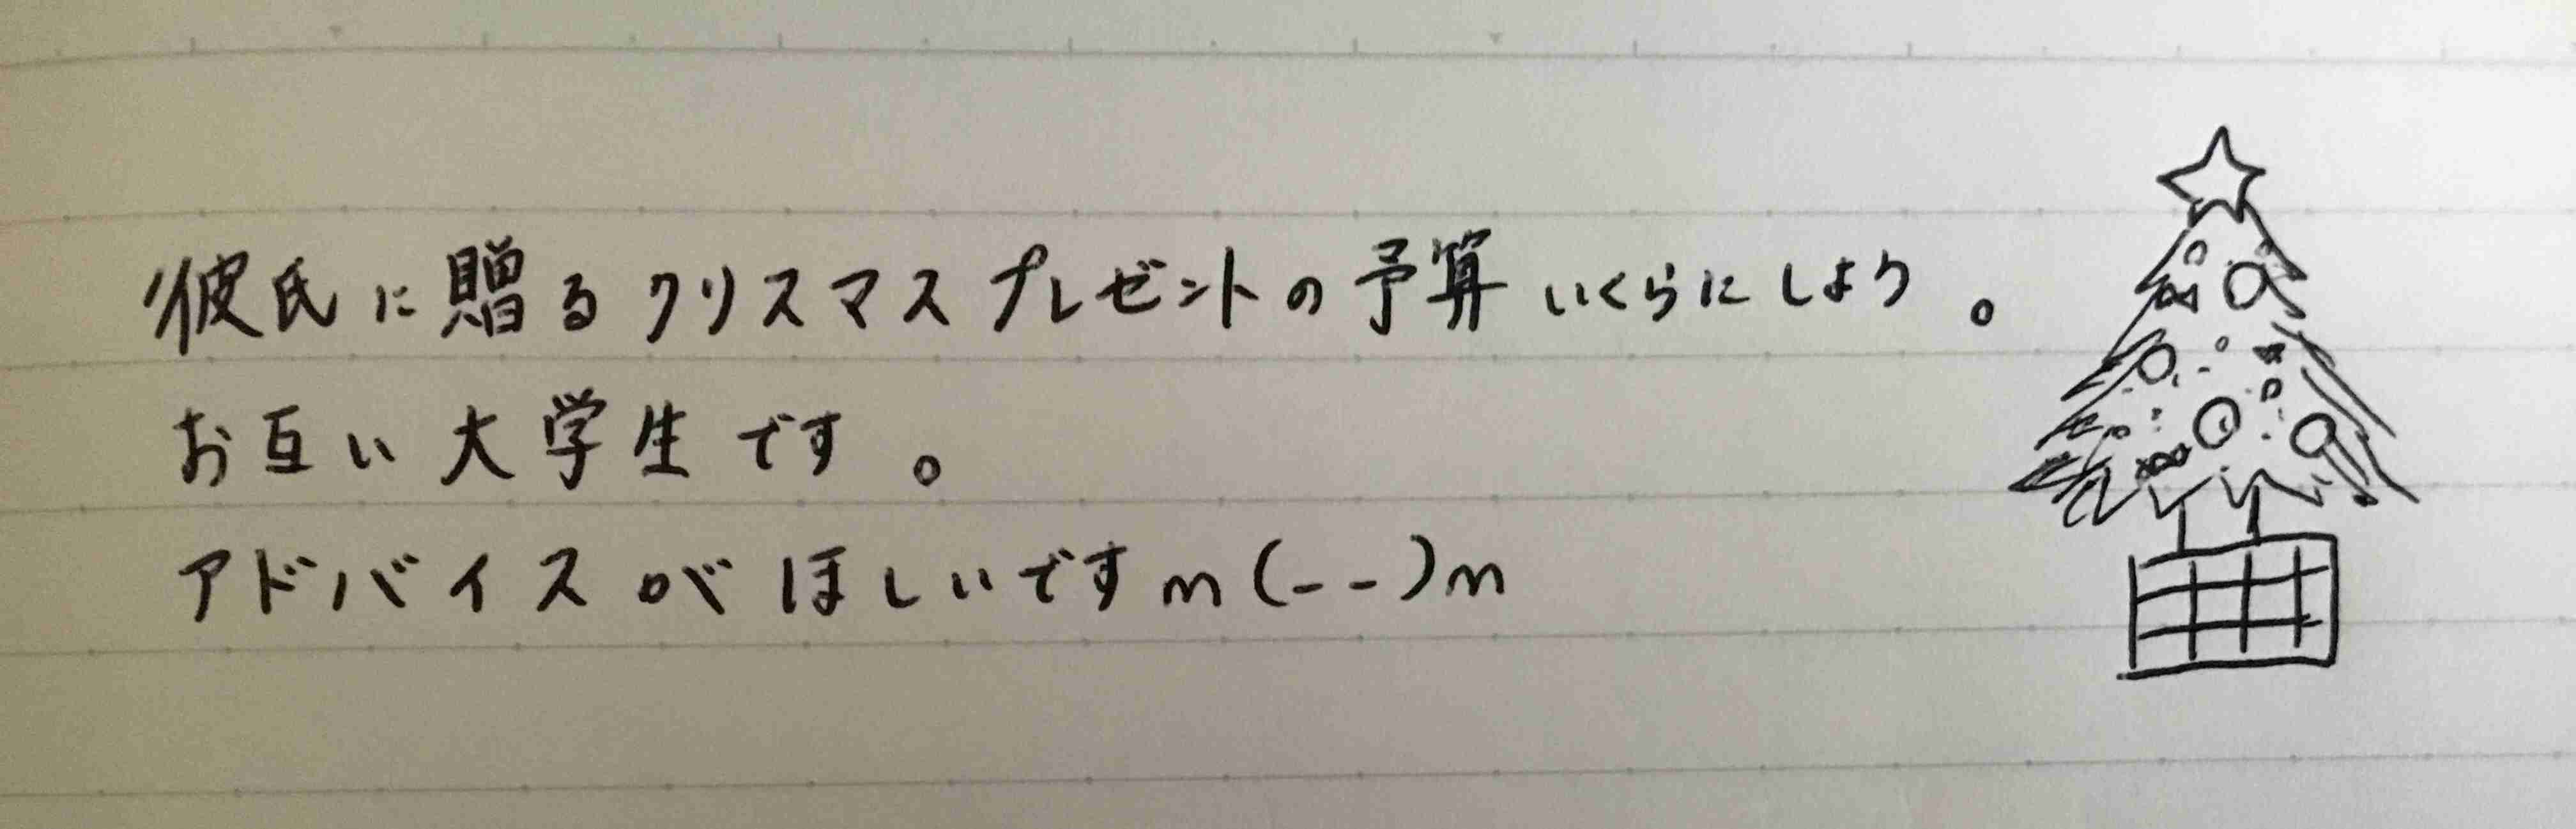 彼氏に贈るクリスマスプレゼントの予算いくらにしよう。
お互い大学生です。
アドバイスがほしいですm(--)m